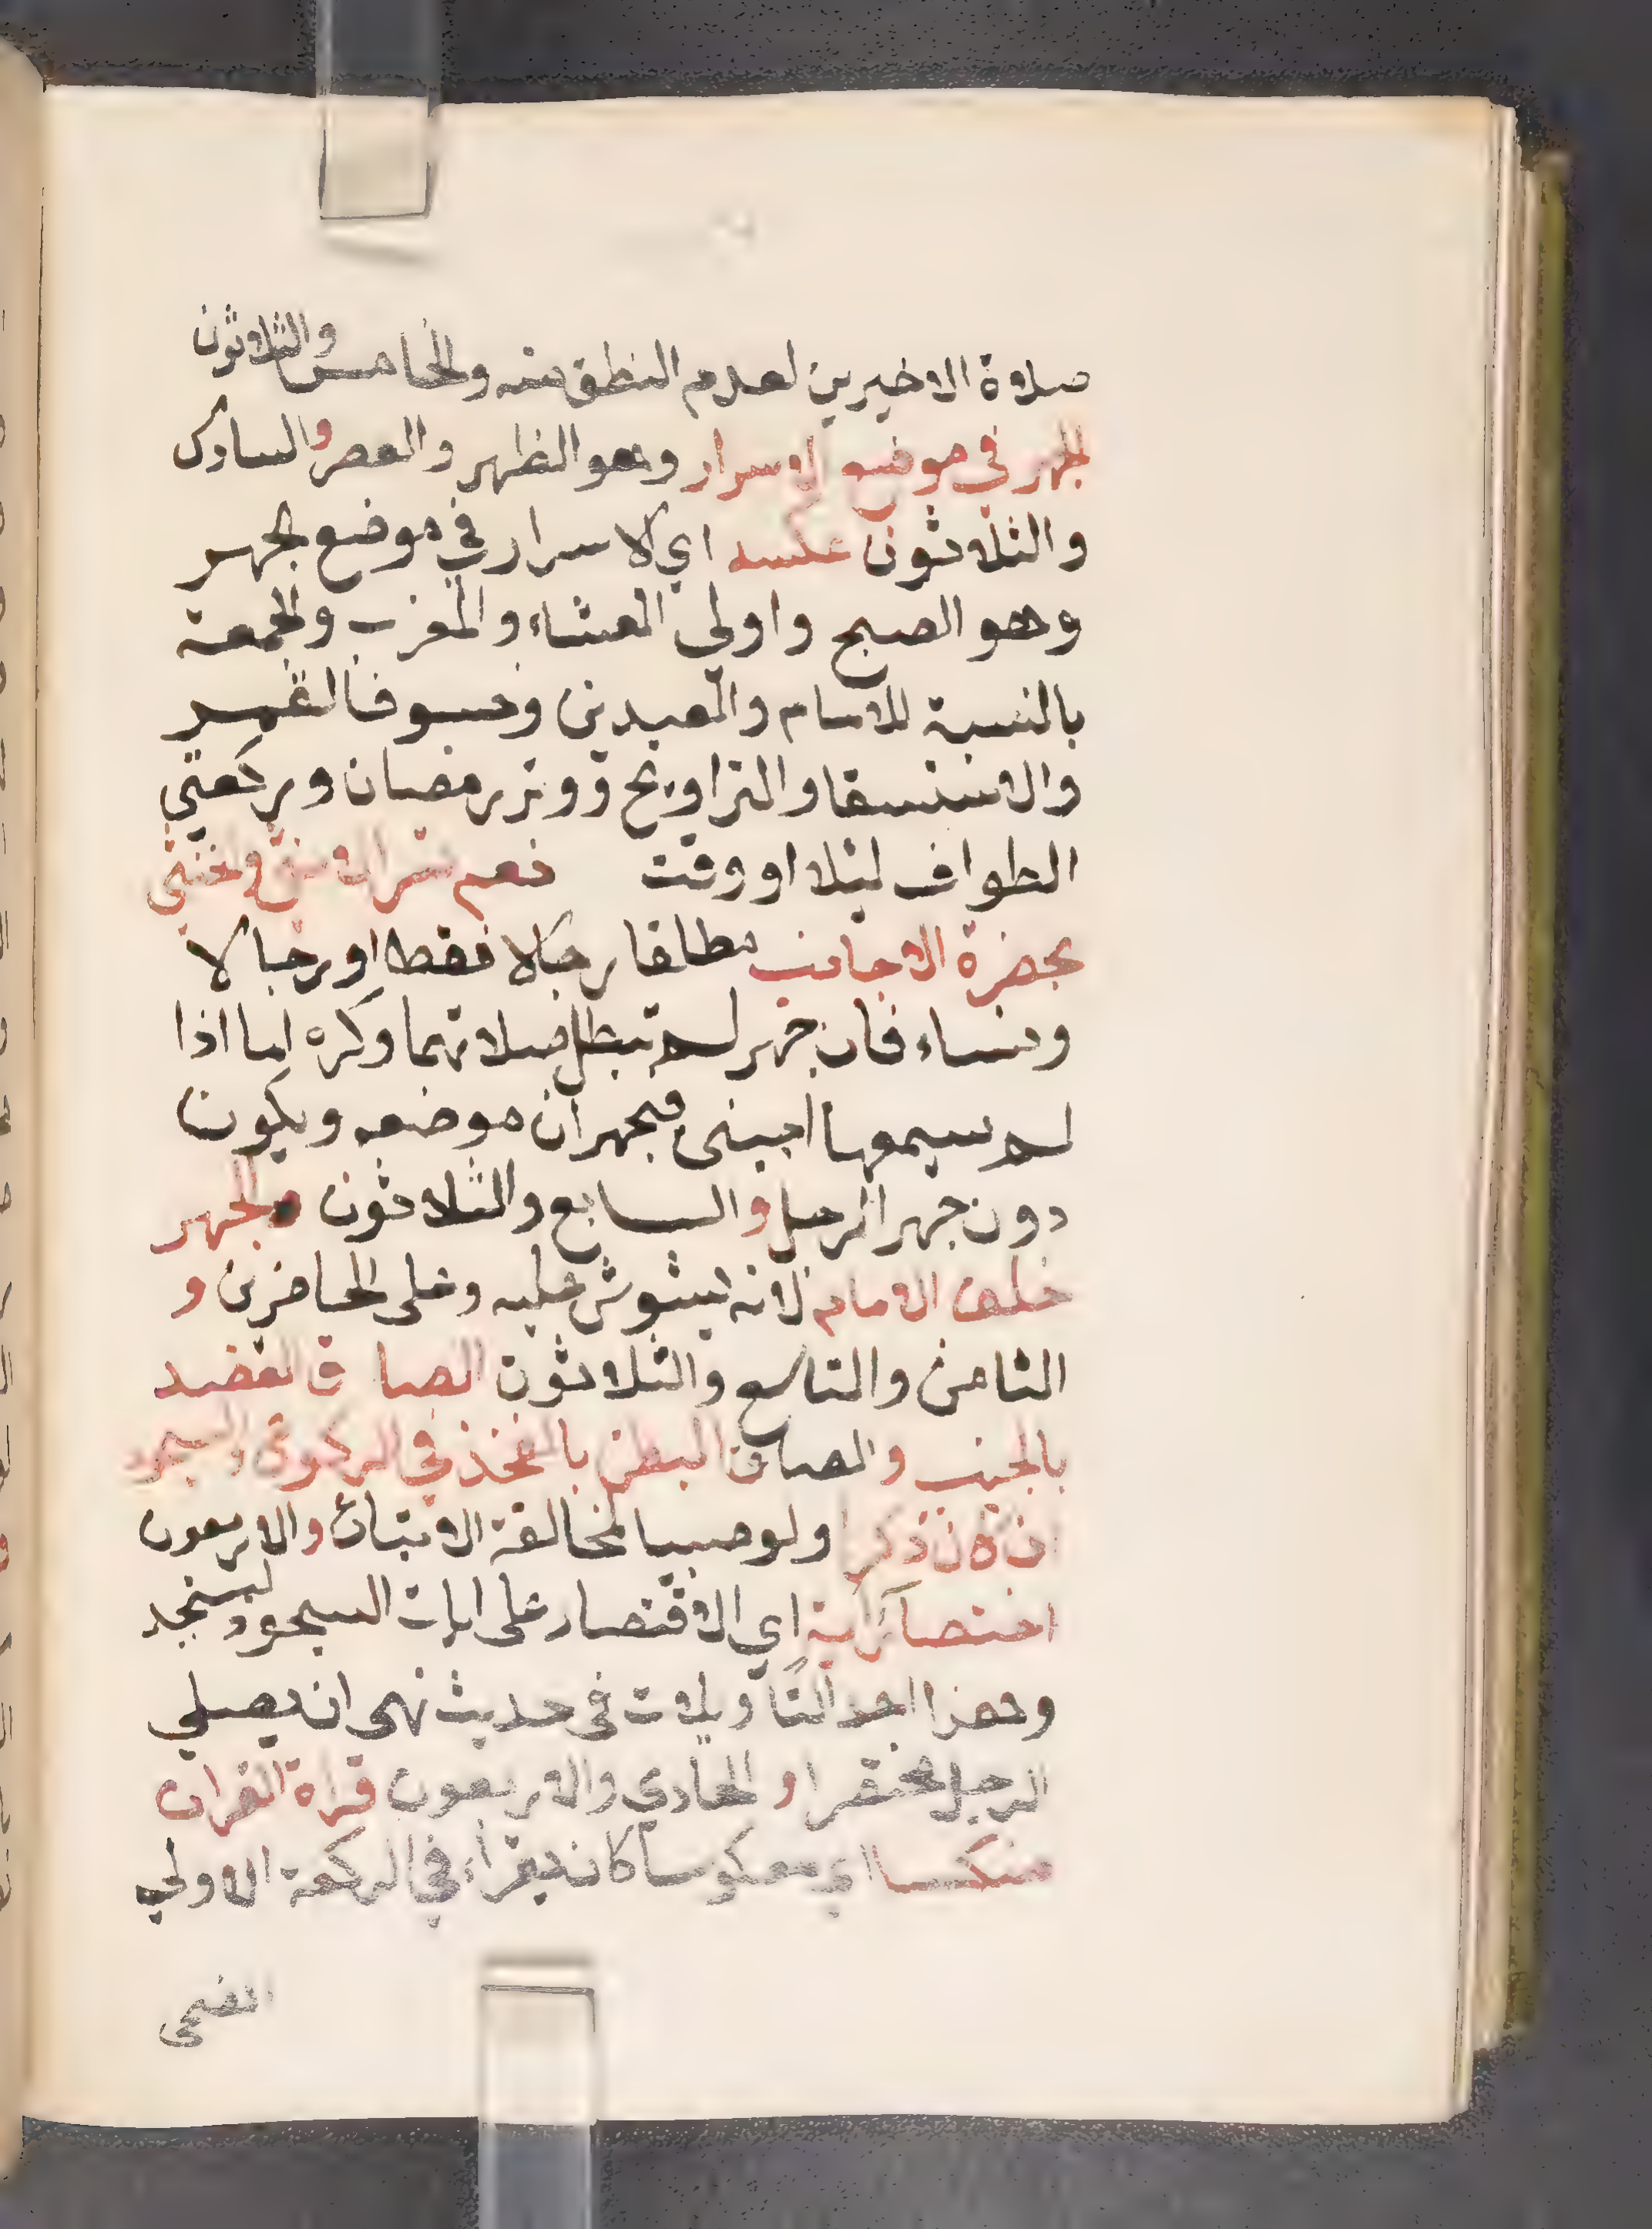 صلاة الاخيرين لعدم النطق منه والخامس والثلاثون
الجهر في موضع الاسرار وهو الظهر والعصر والسادس
والثلاثون عكسه اي الاسرار في موضع الجهر
وهو الصبح واولي العشاء والمغرب والجمعة
بالنسبة للامام والعيدين وخسوف القمر
والاستسقا والتراويح ووتر رمضان وركعتي
الطواف ليلا او وقت نعم تسر الانثى وخنثى
بحضرة الاجانب مطلقا رجالا فقط او رجالا
ونساء فان جهر لم تبطل صلاتهما وكره اما اذا
لم يسمعها اجنبي فيجهران موضعه ويكون
دون جهر الرجل والسابع والثلاثون الجهر
خلف الامام لانه يشوش عليه وعلى الحاضرين و
الثامن والتاسع والثلاثون الصاق العضد
بالجنب والصاق البطن بالفخذ في الركوع والسجود
ان كان ذكرا ولو صبيا لمخالفة الاتباع والاربعون
اختصار اية اي الاقتصار على ايات السجود ليسجد
وهذا احد التاويلات في حديث نهى ان يصلي
الرجل مختصرا و الحادي والاربعون قراة القران
منكسا اي معكوسا كان يقراء في الركعة الاولي
الضحى